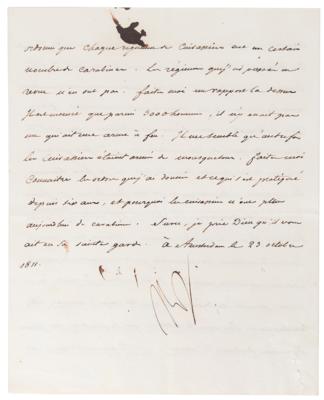 ordonné que chaque régiment de Cuirassiers eut un certain
nombre de carabines. Le régiment que j'ai passé en
revue n'en eut pas. faites moi un rapport là dessus
Il est ennuyé que parmi 3000 hommes, il n'y en ait pas
un qui ait une arme à feu. Il me semble qu'autrefois
les cuirassiers étaient armés de mousquetons. faites moi
connaître les ordres que j'ai donnés et ce qui s'est pratiqué
depuis six ans, et pourquoi les cuirassiers n'ont plus
aujourd'hui de carabines. Sur ce, je prie Dieu qu'il vous
ait en sa sainte garde. à Amsterdam le 23 octobre
1811.